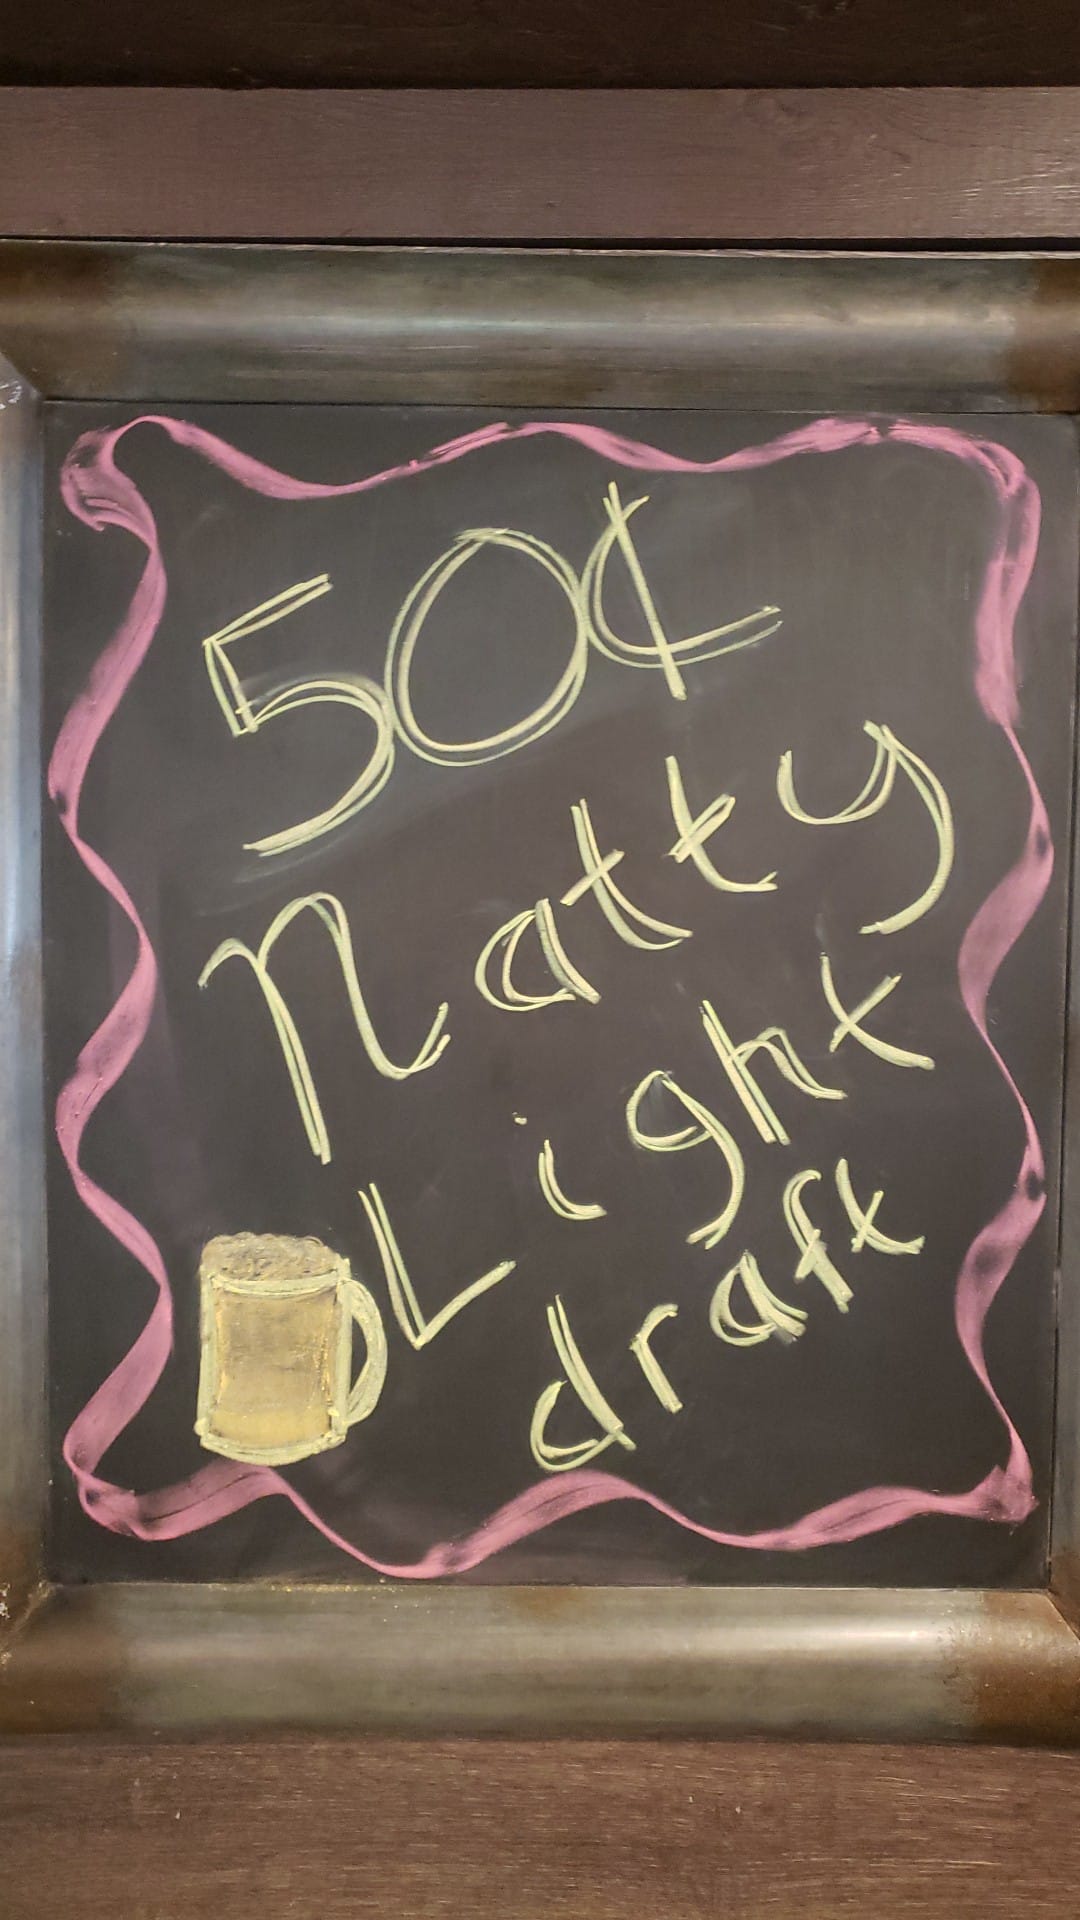 50¢
Natty
Light
draft